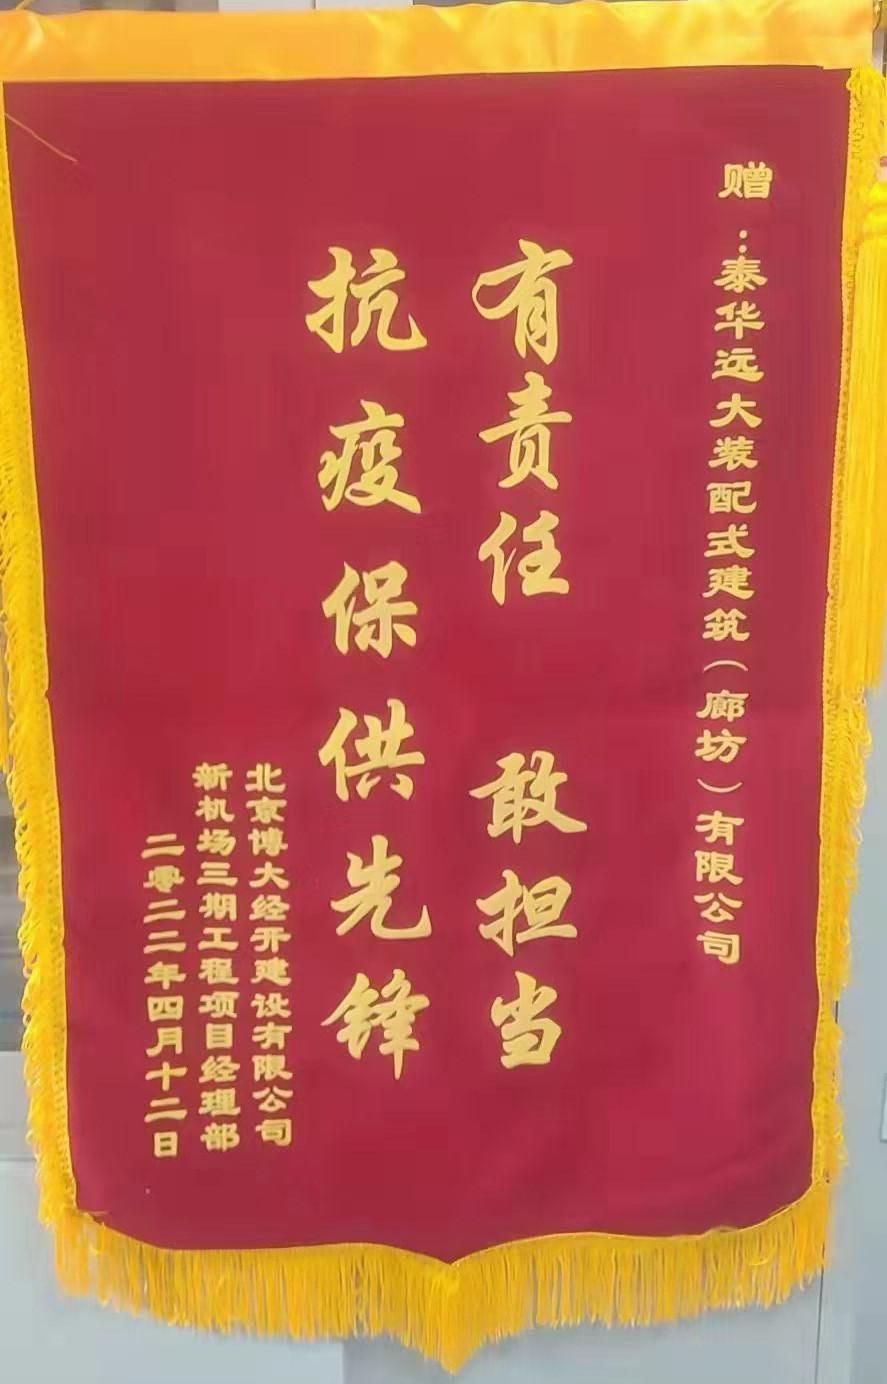 赠：泰华远大装配式建筑（廊坊）有限公司
有责任 敢担当
抗疫保供先锋
北京博大经开建设有限公司
新机场三期工程项目经理部
二零二二年四月十二日